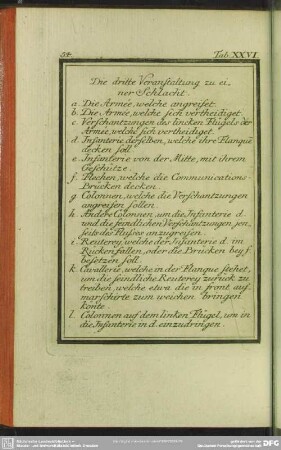 54.
Tab. XXVI
Die dritte Veranstaltung zu ei-
ner Schlacht.
a. Die Armée, welche angreifet.
b. Die Armée, welche sich vertheidiget.
c. Verschantzungen des lincken Flügels der
Armée, welche sich vertheidiget.
d. Infanterie derselben, welche ihre Flanque
decken soll.
e. Infanterie von der Mitte, mit ihrem
Geschütze.
f. Flechen, welche die Communications-
Brücken decken.
g. Colonnen, welche die Verschantzungen
angreifen sollen.
h. Andere Colonnen, um die Infanterie d.
und die feindlichen Verschantzungen, jen-
seits des Flusses anzugreifen.
i. Reuterey, welche der Infanterie d. im
Rücken fallen, oder die Brücken bey f.
besetzen soll.
k. Cavallerie, welche in der Flanque stehet,
um die feindliche Reuterey zurück zu
treiben, welche etwa die in front auf-
marschirte zum weichen bringen
könte.
l. Colonnen auf dem linken Flügel, um in
die Infanterie in d. einzudringen.
DFG